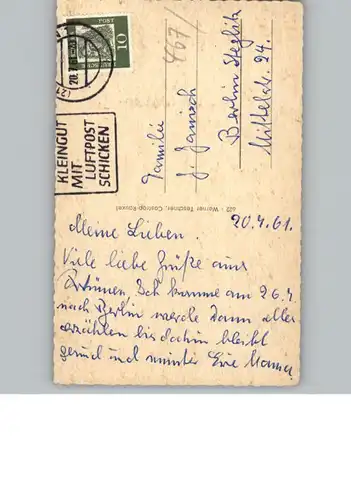 DEUTSCHE BUNDESPOST
10
KLEINGUT
MIT
LUFTPOST
SCHICKEN
467/
Familie
J. Janisch
Berlin Steglitz
Mittelstr. 24.
622 - Werner Teschner, Castrop-Rauxel
20.4.61.
Meine Lieben.
Viele liebe Grüße aus
Ich komme am 26.4.
nach Berlin werde dann alles
erzählen bis dahin bleibt
gesund und munter Eure Mama.